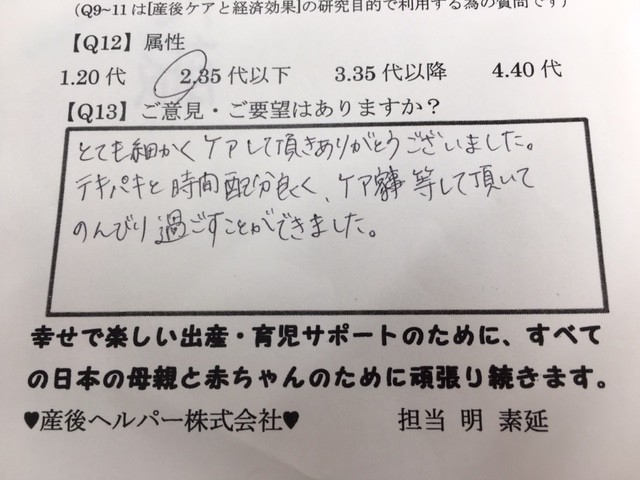 (Q9~11は[産後ケアと経済効果]の研究目的で利用する為の質問です)
【Q12】属性
1.20代 2.35代以下 3.35代以降 4.40代
【Q13】ご意見・ご要望はありますか?
とても細かくケアして頂きありがとうございました。
テキパキと時間配分良く、ケア家事等して頂いて
のんびり過ごすことができました。
幸せで楽しい出産・育児サポートのために、すべて
の日本の母親と赤ちゃんのために頑張り続きます。
♥産後ヘルパー株式会社♥ 担当 明 素延